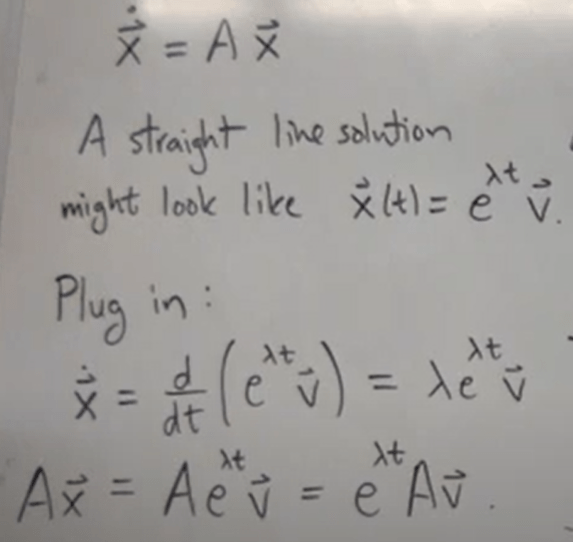 ẋ⃗ = A x⃗
A straight line solution
might look like x⃗(t) = e^{λt} v⃗.
Plug in:
ẋ⃗ = d/dt (e^{λt} v⃗) = λe^{λt} v⃗
Ax⃗ = Ae^{λt} v⃗ = e^{λt} Av⃗.